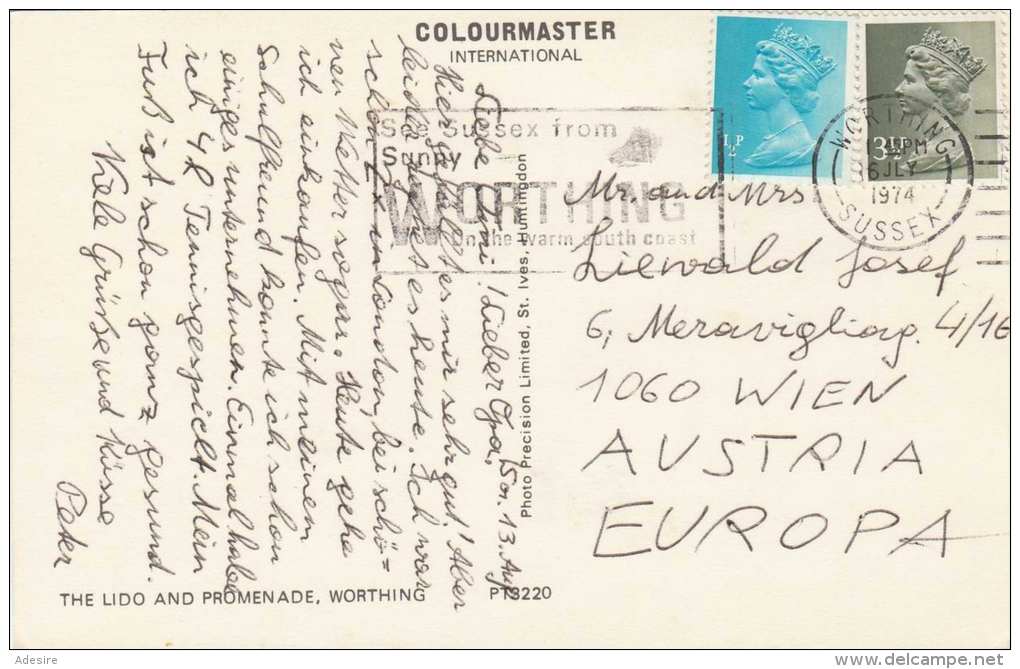 COLOURMASTER
INTERNATIONAL
½P
3½P
WORTHING
PM
6 JLY
1974
SUSSEX
See Sussex from
Sunny
WORTHING
On the warm south coast
Liebe Omi! Lieber Opa,
Hier gefällt es mir sehr gut! Aber
leider regnet es heute. Ich war
schon in London, bei schö=
nen Wetter sogar. Heute gehe
ich einkaufen. Mit meinen
Schulfreund konnte ich schon
einiges unternehmen. Einmal habe
ich 4h Tennis gespielt. Mein
Fuß ist schon ganz gesund.
Viele Grüße und Küsse
Peter
Photo Precision Limited, St. Ives, Huntingdon
Mr. and Mrs
Liewald Josef
6, Meravigliag. 4/16
1060 WIEN
AUSTRIA
EUROPA
THE LIDO AND PROMENADE, WORTHING
PT3220
Adesire
delcampe.net